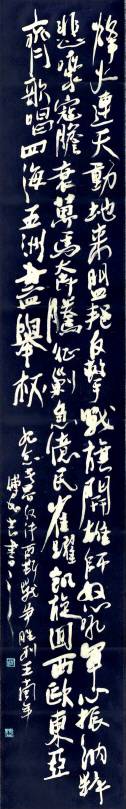 烽火連天動地来盟反擊戰旗開雄師怒吼軍心振納粹
悲嚎寇膽衰萬馬奔騰征剿急億民雀躍凱旋回西歐東亞
齊歌唱四海五洲盡舉杯
纪念世界反法西斯战争胜利五十周年
書